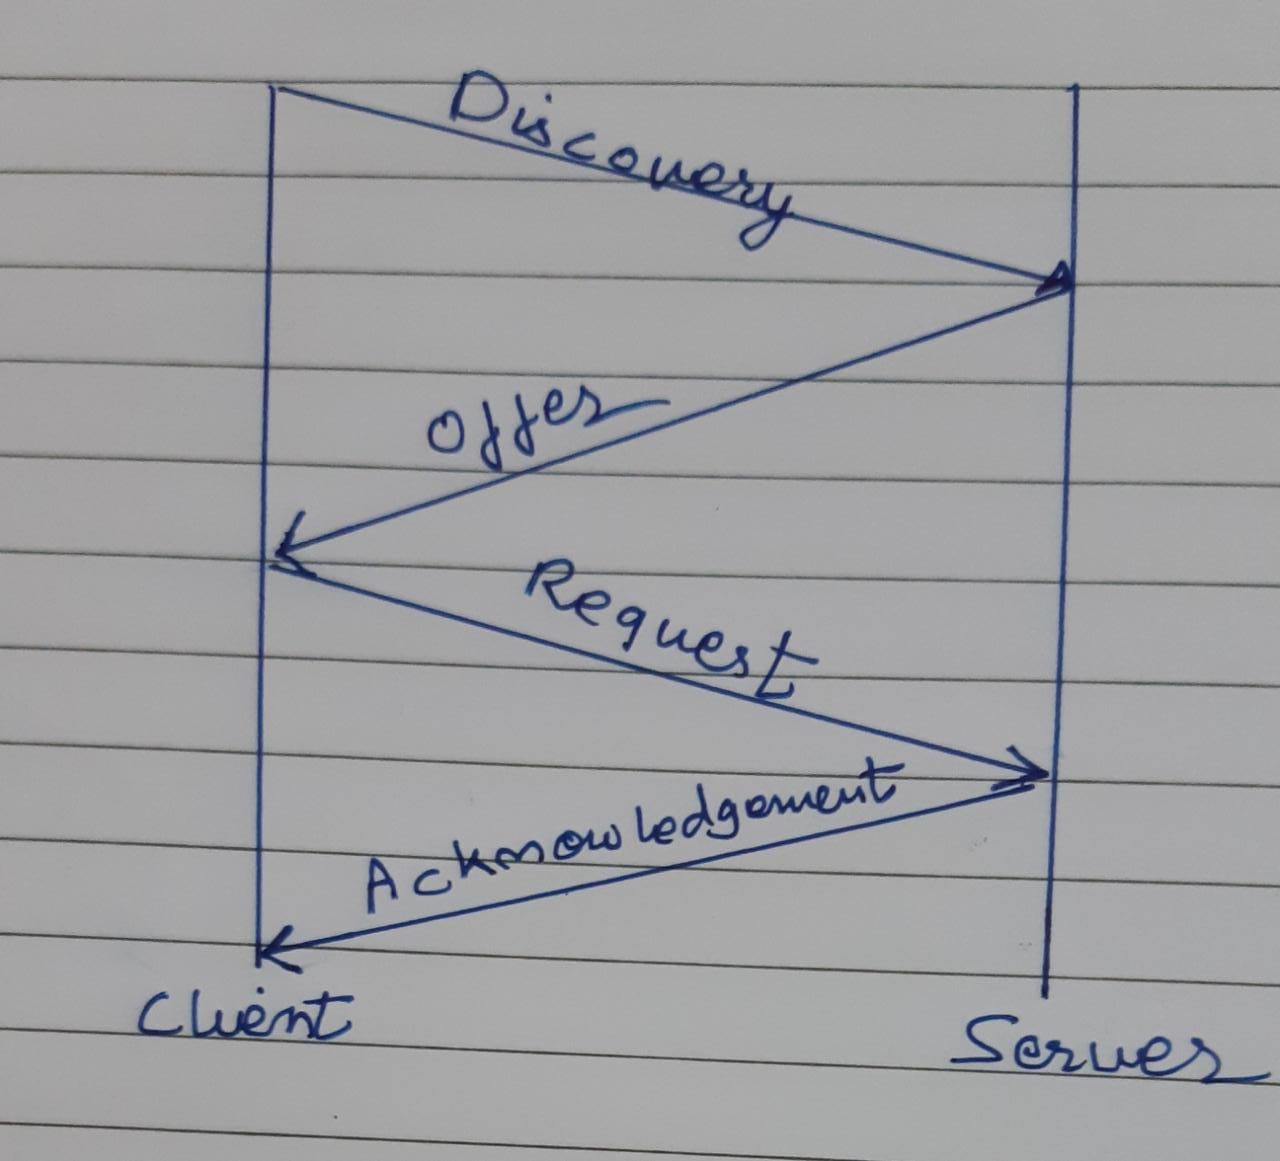 Discovery
Offer
Request
Acknowledgement
Client
Server